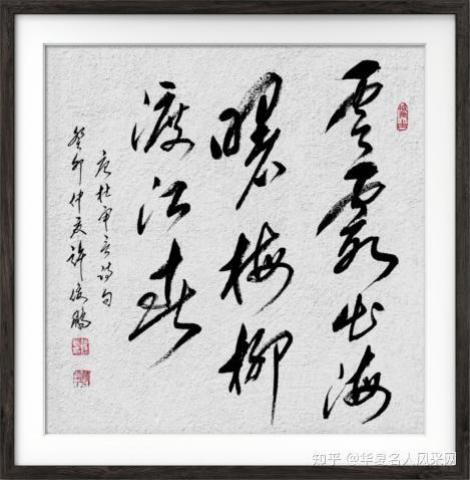 雲霞出海
曙梅柳
渡江春
唐杜审言诗句
癸卯仲夏许俊鹏
知乎 @华夏名人风采网